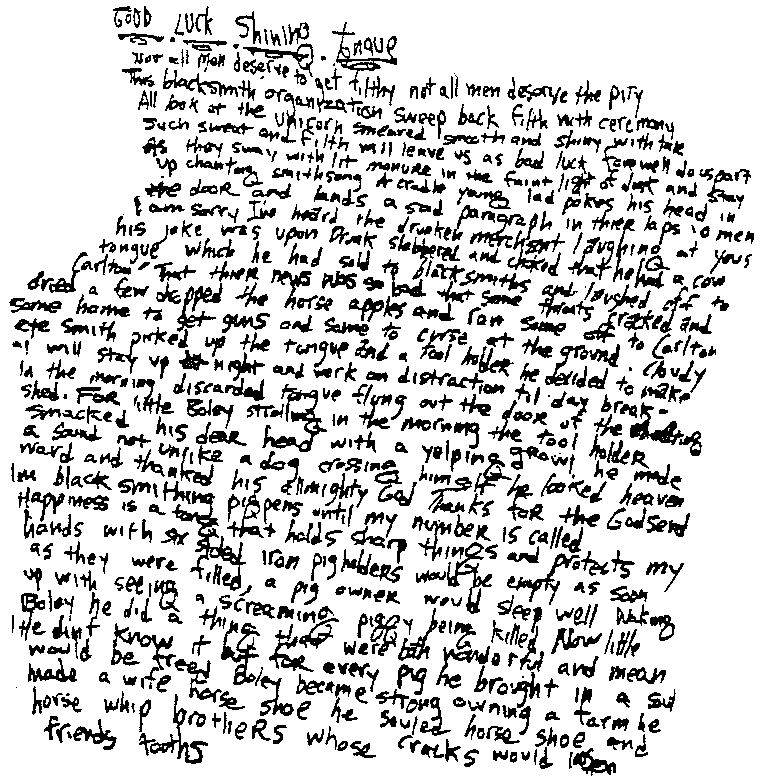 GOOD . LUCK . Shining . tongue
Not all men deserve to get filthy not all men deserve the pity
This blacksmith organization sweep back filth with ceremony
All look at the Unicorn smeared smooth and shiny with
Such sweat and filth will leave us as bad luck farewell do us part
As they sway with lit manure in the faint light of dusk and stay
up chanting smithsong A cradle young lad pokes his head in
the door and hands a sad paragraph in three laps to men
I am sorry I've heard the drunken merchant laughing at yous
his joke was upon Drunk slobbered and choked that he had a cow
tongue which he had sold to blacksmiths and loushed off to
Carlton That three news was so bad that some throats cracked and
dried a few dropped the horse apples and ran some off to Carlton
some home to get guns and some to curse at the ground. Cloudy
eye Smith picked up the tongue and a tool holder he decided to make
al will stay up at night and work on distraction til day break-
In the morning discarded tongue flung out the door of the
shed. For little Boley strolling in the morning the tool holder
smacked his dear head with a yelping growl he made
a sound not unlike a dog crossing himself he looked heaven
ward and thanked his almighty God Thanks for the Godsend
Im black smithing pigpens until my number is called
Happiness is a tong that holds sharp things and protects my
hands with six sided iron pigholders would be empty as soon
as they were filled, a pig owner would sleep well waking
up with seeing a screaming piggy being killed, Now little
Boley he did a thing that were both wonderful and mean
He dint know it but for every pig he brought in a soul
would be freed Boley became strong owning a farm he
made a wife horse shoe he sauled horse shoe and
horse whip brotheRs whose cracks would
friends tooths